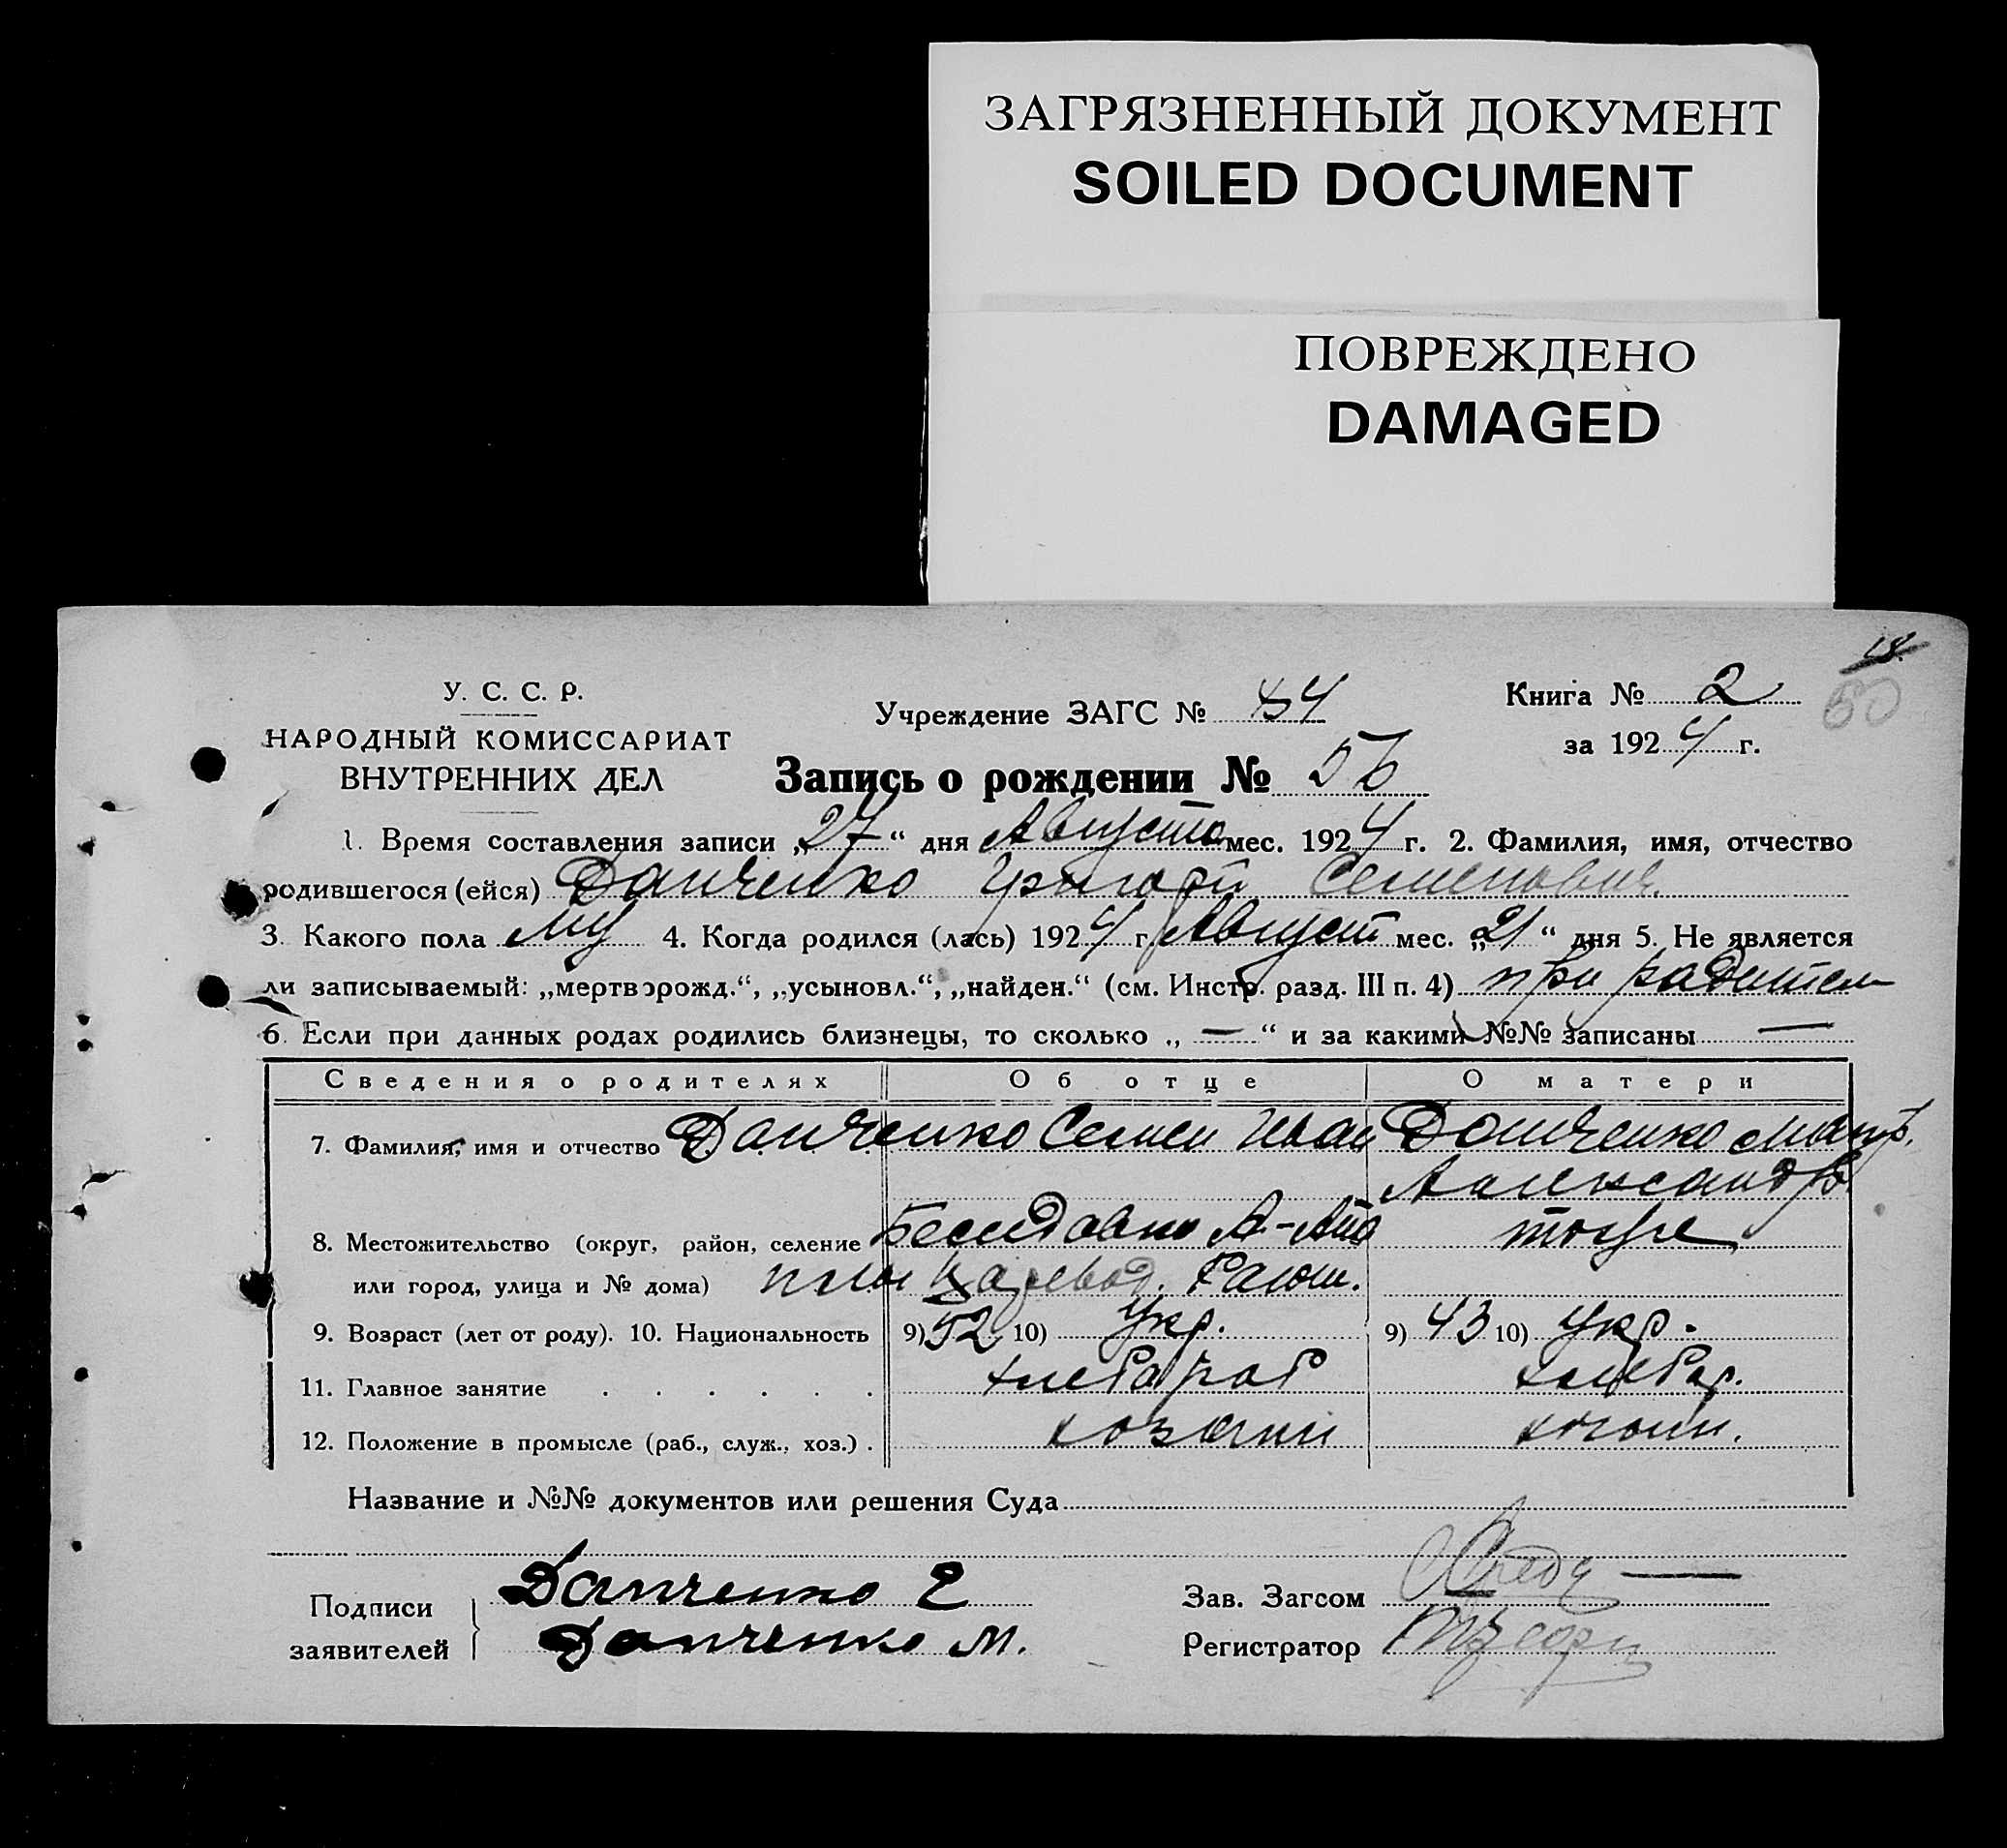 ЗАГРЯЗНЕННЫЙ ДОКУМЕНТ
SOILED DOCUMENT
ПОВРЕЖДЕНО
DAMAGED
18.
50
У. С. С. Р.
НАРОДНЫЙ КОМИССАРИАТ
ВНУТРЕННИХ ДЕЛ
Учреждение ЗАГС № 44
Книга № 2
за 1924 г.
Запись о рождении № 56
1. Время составления записи „27“ дня Августа мес. 1924 г. 2. Фамилия, имя, отчество
родившегося (ейся) Данченко Григорій Семенович.
3. Какого пола Му 4. Когда родился (лась) 1924 г. Август мес. „21“ дня 5. Не является
ли записываемый: „мертворожд.“, „усыновл.“, „найден.“ (см. Инстр. разд. III п. 4) при радители
6. Если при данных родах родились близнецы, то сколько „ — “ и за какими №№ записаны —
Сведения о родителях Об отце О матери
7. Фамилия, имя и отчество Данченко Семен Иван Данченко Матр.
Александр.
8. Местожительство (округ, район, селение
или город, улица и № дома) Раюш. тоже
9. Возраст (лет от роду). 10. Национальность 9) 52 10) Укр. 9) 43 10) Укр.
11. Главное занятие . . . . . . хлебароб хлебар.
12. Положение в промысле (раб., служ., хоз.) . хозяин хозяин.
Название и №№ документов или решения Суда
Подписи
заявителей
Данченко Е
Данченко М.
Зав. Загсом
Регистратор